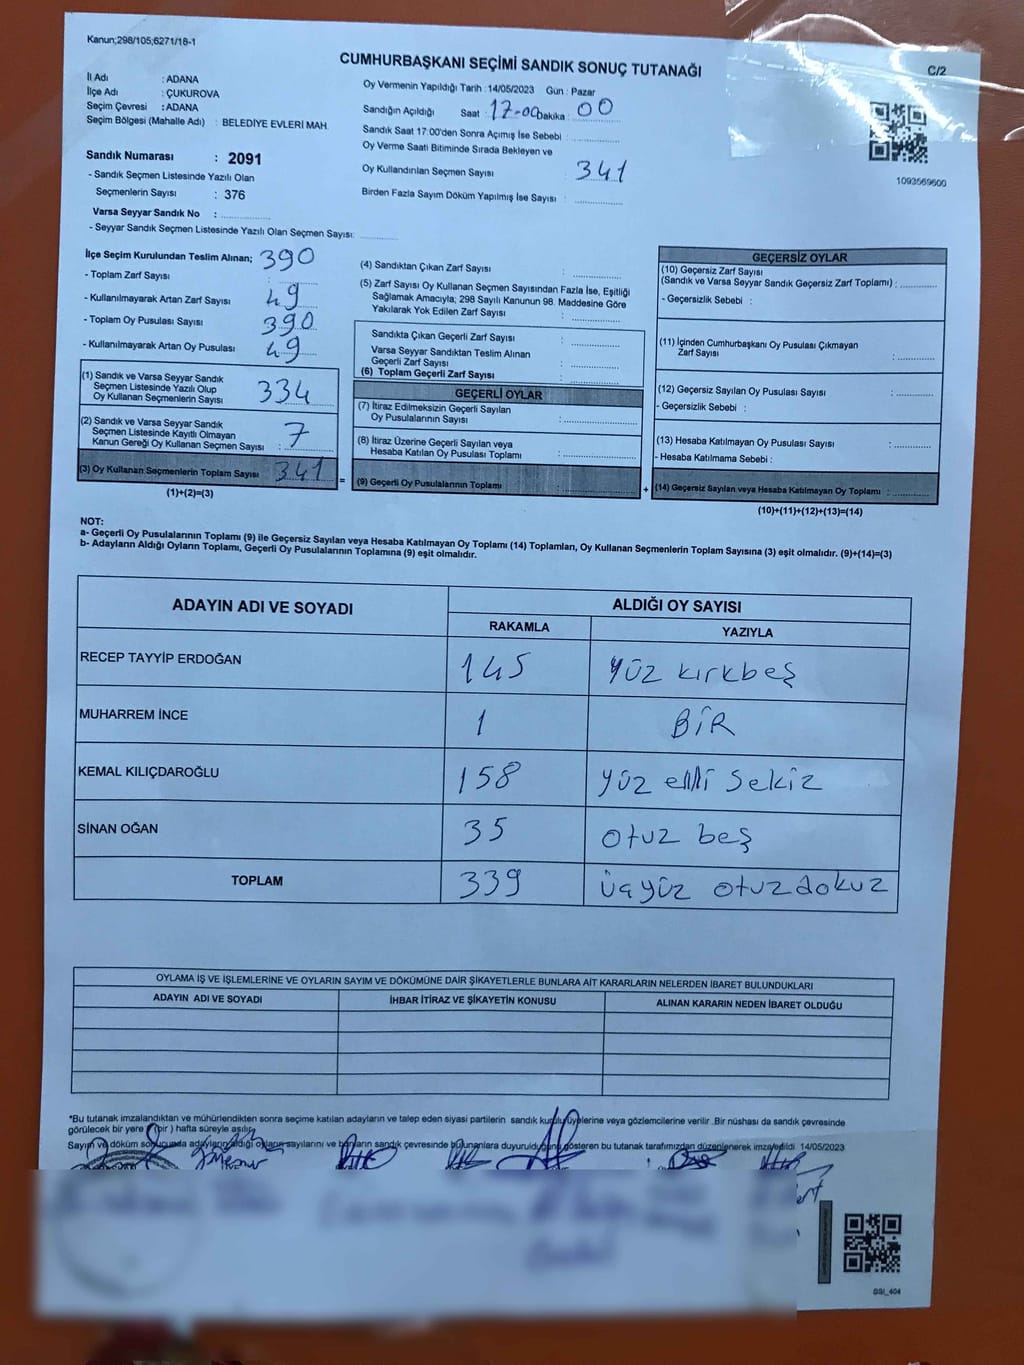 Kanun;298/105,6271/18-1
CUMHURBAŞKANI SEÇİMİ SANDIK SONUÇ TUTANAĞI
C/2
İl Adı : ADANA
İlçe Adı : ÇUKUROVA
Seçim Çevresi : ADANA
Seçim Bölgesi (Mahalle Adı) : BELEDİYE EVLERİ MAH.
Sandık Numarası : 2091
- Sandık Seçmen Listesinde Yazılı Olan
Seçmenlerin Sayısı : 376
Varsa Seyyar Sandık No :
- Seyyar Sandık Seçmen Listesinde Yazılı Olan Seçmen Sayısı:
Oy Vermenin Yapıldığı Tarih : 14/05/2023 Gün : Pazar
Sandığın Açıldığı Saat : 17-00 Dakika : 00
Sandık Saat 17:00'den Sonra Açımış İse Sebebi :
Oy Verme Saati Bitiminde Sırada Bekleyen ve
Oy Kullandırılan Seçmen Sayısı : 341
Birden Fazla Sayım Döküm Yapılmış İse Sayısı :
1093569600
İlçe Seçim Kurulundan Teslim Alınan; 390
- Toplam Zarf Sayısı :
- Kullanılmayarak Artan Zarf Sayısı : 49
- Toplam Oy Pusulası Sayısı : 390
- Kullanılmayarak Artan Oy Pusulası : 49
(1) Sandık ve Varsa Seyyar Sandık
Seçmen Listesinde Yazılı Olup
Oy Kullanan Seçmenlerin Sayısı : 334
(2) Sandık ve Varsa Seyyar Sandık
Seçmen Listesinde Kayıtlı Olmayan
Kanun Gereği Oy Kullanan Seçmen Sayısı : 7
(3) Oy Kullanan Seçmenlerin Toplam Sayısı : 341
(1)+(2)=(3)
=
(4) Sandıktan Çıkan Zarf Sayısı :
(5) Zarf Sayısı Oy Kullanan Seçmen Sayısından Fazla İse, Eşitliği
Sağlamak Amacıyla; 298 Sayılı Kanunun 98. Maddesine Göre
Yakılarak Yok Edilen Zarf Sayısı :
Sandıkta Çıkan Geçerli Zarf Sayısı :
Varsa Seyyar Sandıktan Teslim Alınan
Geçerli Zarf Sayısı :
(6) Toplam Geçerli Zarf Sayısı :
GEÇERLİ OYLAR
(7) İtiraz Edilmeksizin Geçerli Sayılan
Oy Pusulalarının Sayısı :
(8) İtiraz Üzerine Geçerli Sayılan veya
Hesaba Katılan Oy Pusulası Toplamı :
(9) Geçerli Oy Pusulalarının Toplamı :
+
GEÇERSİZ OYLAR
(10) Geçersiz Zarf Sayısı
(Sandık ve Varsa Seyyar Sandık Geçersiz Zarf Toplamı) :
- Geçersizlik Sebebi :
(11) İçinden Cumhurbaşkanı Oy Pusulası Çıkmayan
Zarf Sayısı :
(12) Geçersiz Sayılan Oy Pusulası Sayısı :
- Geçersizlik Sebebi :
(13) Hesaba Katılmayan Oy Pusulası Sayısı :
- Hesaba Katılmama Sebebi :
(14) Geçersiz Sayılan veya Hesaba Katılmayan Oy Toplamı :
(10)+(11)+(12)+(13)=(14)
NOT:
a- Geçerli Oy Pusulalarının Toplamı (9) ile Geçersiz Sayılan veya Hesaba Katılmayan Oy Toplamı (14) Toplamları, Oy Kullanan Seçmenlerin Toplam Sayısına (3) eşit olmalıdır. (9)+(14)=(3)
b- Adayların Aldığı Oyların Toplamı, Geçerli Oy Pusulalarının Toplamına (9) eşit olmalıdır.
ADAYIN ADI VE SOYADI ALDIĞI OY SAYISI
RAKAMLA YAZIYLA
RECEP TAYYİP ERDOĞAN 145 Yüz kırkbeş
MUHARREM İNCE 1 BİR
KEMAL KILIÇDAROĞLU 158 Yüz elli sekiz
SİNAN OĞAN 35 otuz beş
TOPLAM 339 üçyüz otuzdokuz
OYLAMA İŞ VE İŞLEMLERİNE VE OYLARIN SAYIM VE DÖKÜMÜNE DAİR ŞİKAYETLERLE BUNLARA AİT KARARLARIN NELERDEN İBARET BULUNDUKLARI
ADAYIN ADI VE SOYADI İHBAR İTİRAZ VE ŞİKAYETİN KONUSU ALINAN KARARIN NEDEN İBARET OLDUĞU
*Bu tutanak imzalandıktan ve mühürlendikten sonra seçime katılan adayların ve talep eden siyasi partilerin sandık kurulu üyelerine veya gözlemcilerine verilir .Bir nüshası da sandık çevresinde
görülecek bir yere (bir ) hafta süreyle asılır.
Sayım ve döküm sonucunda adayların aldığı oyların sayılarını ve bunların sandık çevresinde bulunanlara duyurulduğunu gösteren bu tutanak tarafımızdan düzenlenerek imza edildi 14/05/2023
GSI_404